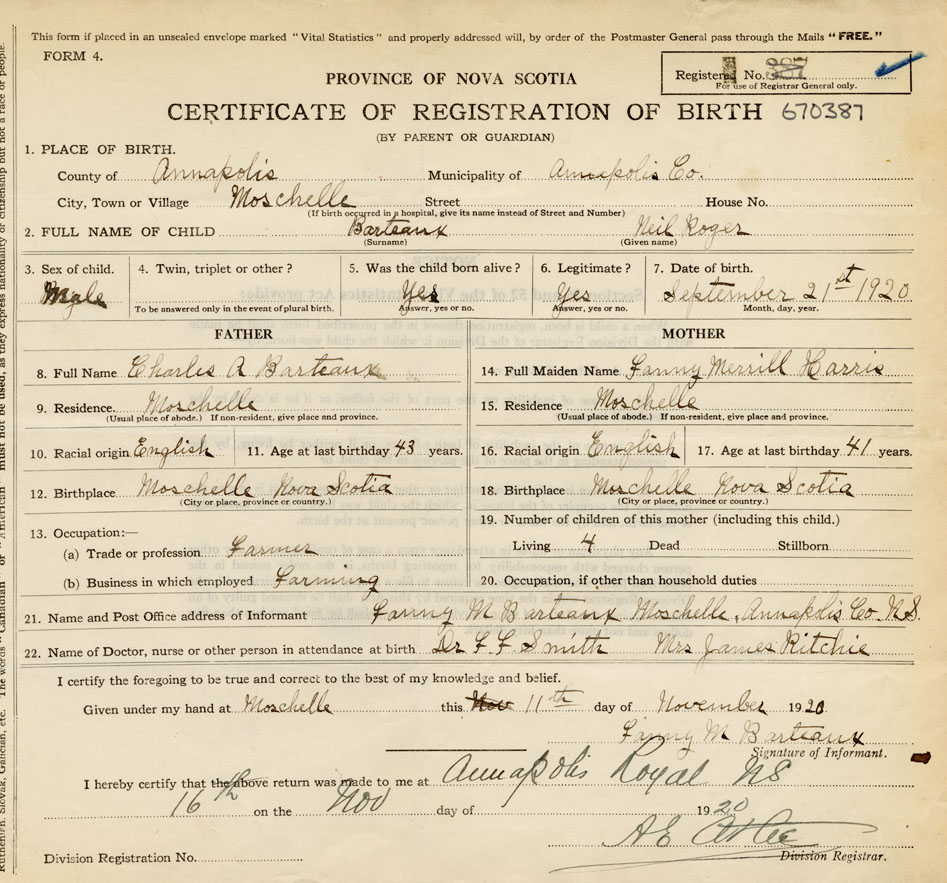 This form if placed in an unsealed envelope marked "Vital Statistics" and properly addressed will, by order of the Postmaster General pass through the Mails "FREE."
FORM 4.
Registered No. 387
For use of Registrar General only.
PROVINCE OF NOVA SCOTIA
CERTIFICATE OF REGISTRATION OF BIRTH 670387
(BY PARENT OR GUARDIAN)
1. PLACE OF BIRTH.
County of Annapolis Municipality of Annapolis Co.
City, Town or Village Moschelle Street House No.
(If birth occurred in a hospital, give its name instead of Street and Number)
2. FULL NAME OF CHILD Barteaux Neil Roger
(Surname) (Given name)
3. Sex of child. 4. Twin, triplet or other? 5. Was the child born alive? 6. Legitimate? 7. Date of birth.
Male Yes Yes September 21st 1920
To be answered only in the event of plural birth. Answer, yes or no. Answer, yes or no. Month, day, year.
FATHER
8. Full Name Charles A Barteaux
9. Residence. Moschelle
(Usual place of abode.) If non-resident, give place and province.
10. Racial origin English 11. Age at last birthday 43 years.
12. Birthplace Moschelle Nova Scotia
(City or place, province or country.)
13. Occupation:—
(a) Trade or profession Farmer
(b) Business in which employed Farming
MOTHER
14. Full Maiden Name Fanny Merrill Harris
15. Residence Moschelle
(Usual place of abode.) If non-resident, give place and province.
16. Racial origin English 17. Age at last birthday 41 years.
18. Birthplace Moschelle Nova Scotia
(City or place, province or country.)
19. Number of children of this mother (including this child.)
Living 4 Dead Stillborn
20. Occupation, if other than household duties
21. Name and Post Office address of Informant Fanny M Barteaux Moschelle, Annapolis Co. N.S.
22. Name of Doctor, nurse or other person in attendance at birth Dr F. F. Smith Mrs James Ritchie
I certify the foregoing to be true and correct to the best of my knowledge and belief.
Given under my hand at Moschelle this Nov 11th day of November 1920
Fanny M Barteaux
Signature of Informant.
I hereby certify that the above return was made to me at Annapolis Royal NS
16th on the Nov day of 1920
A E
Division Registration No. Division Registrar.